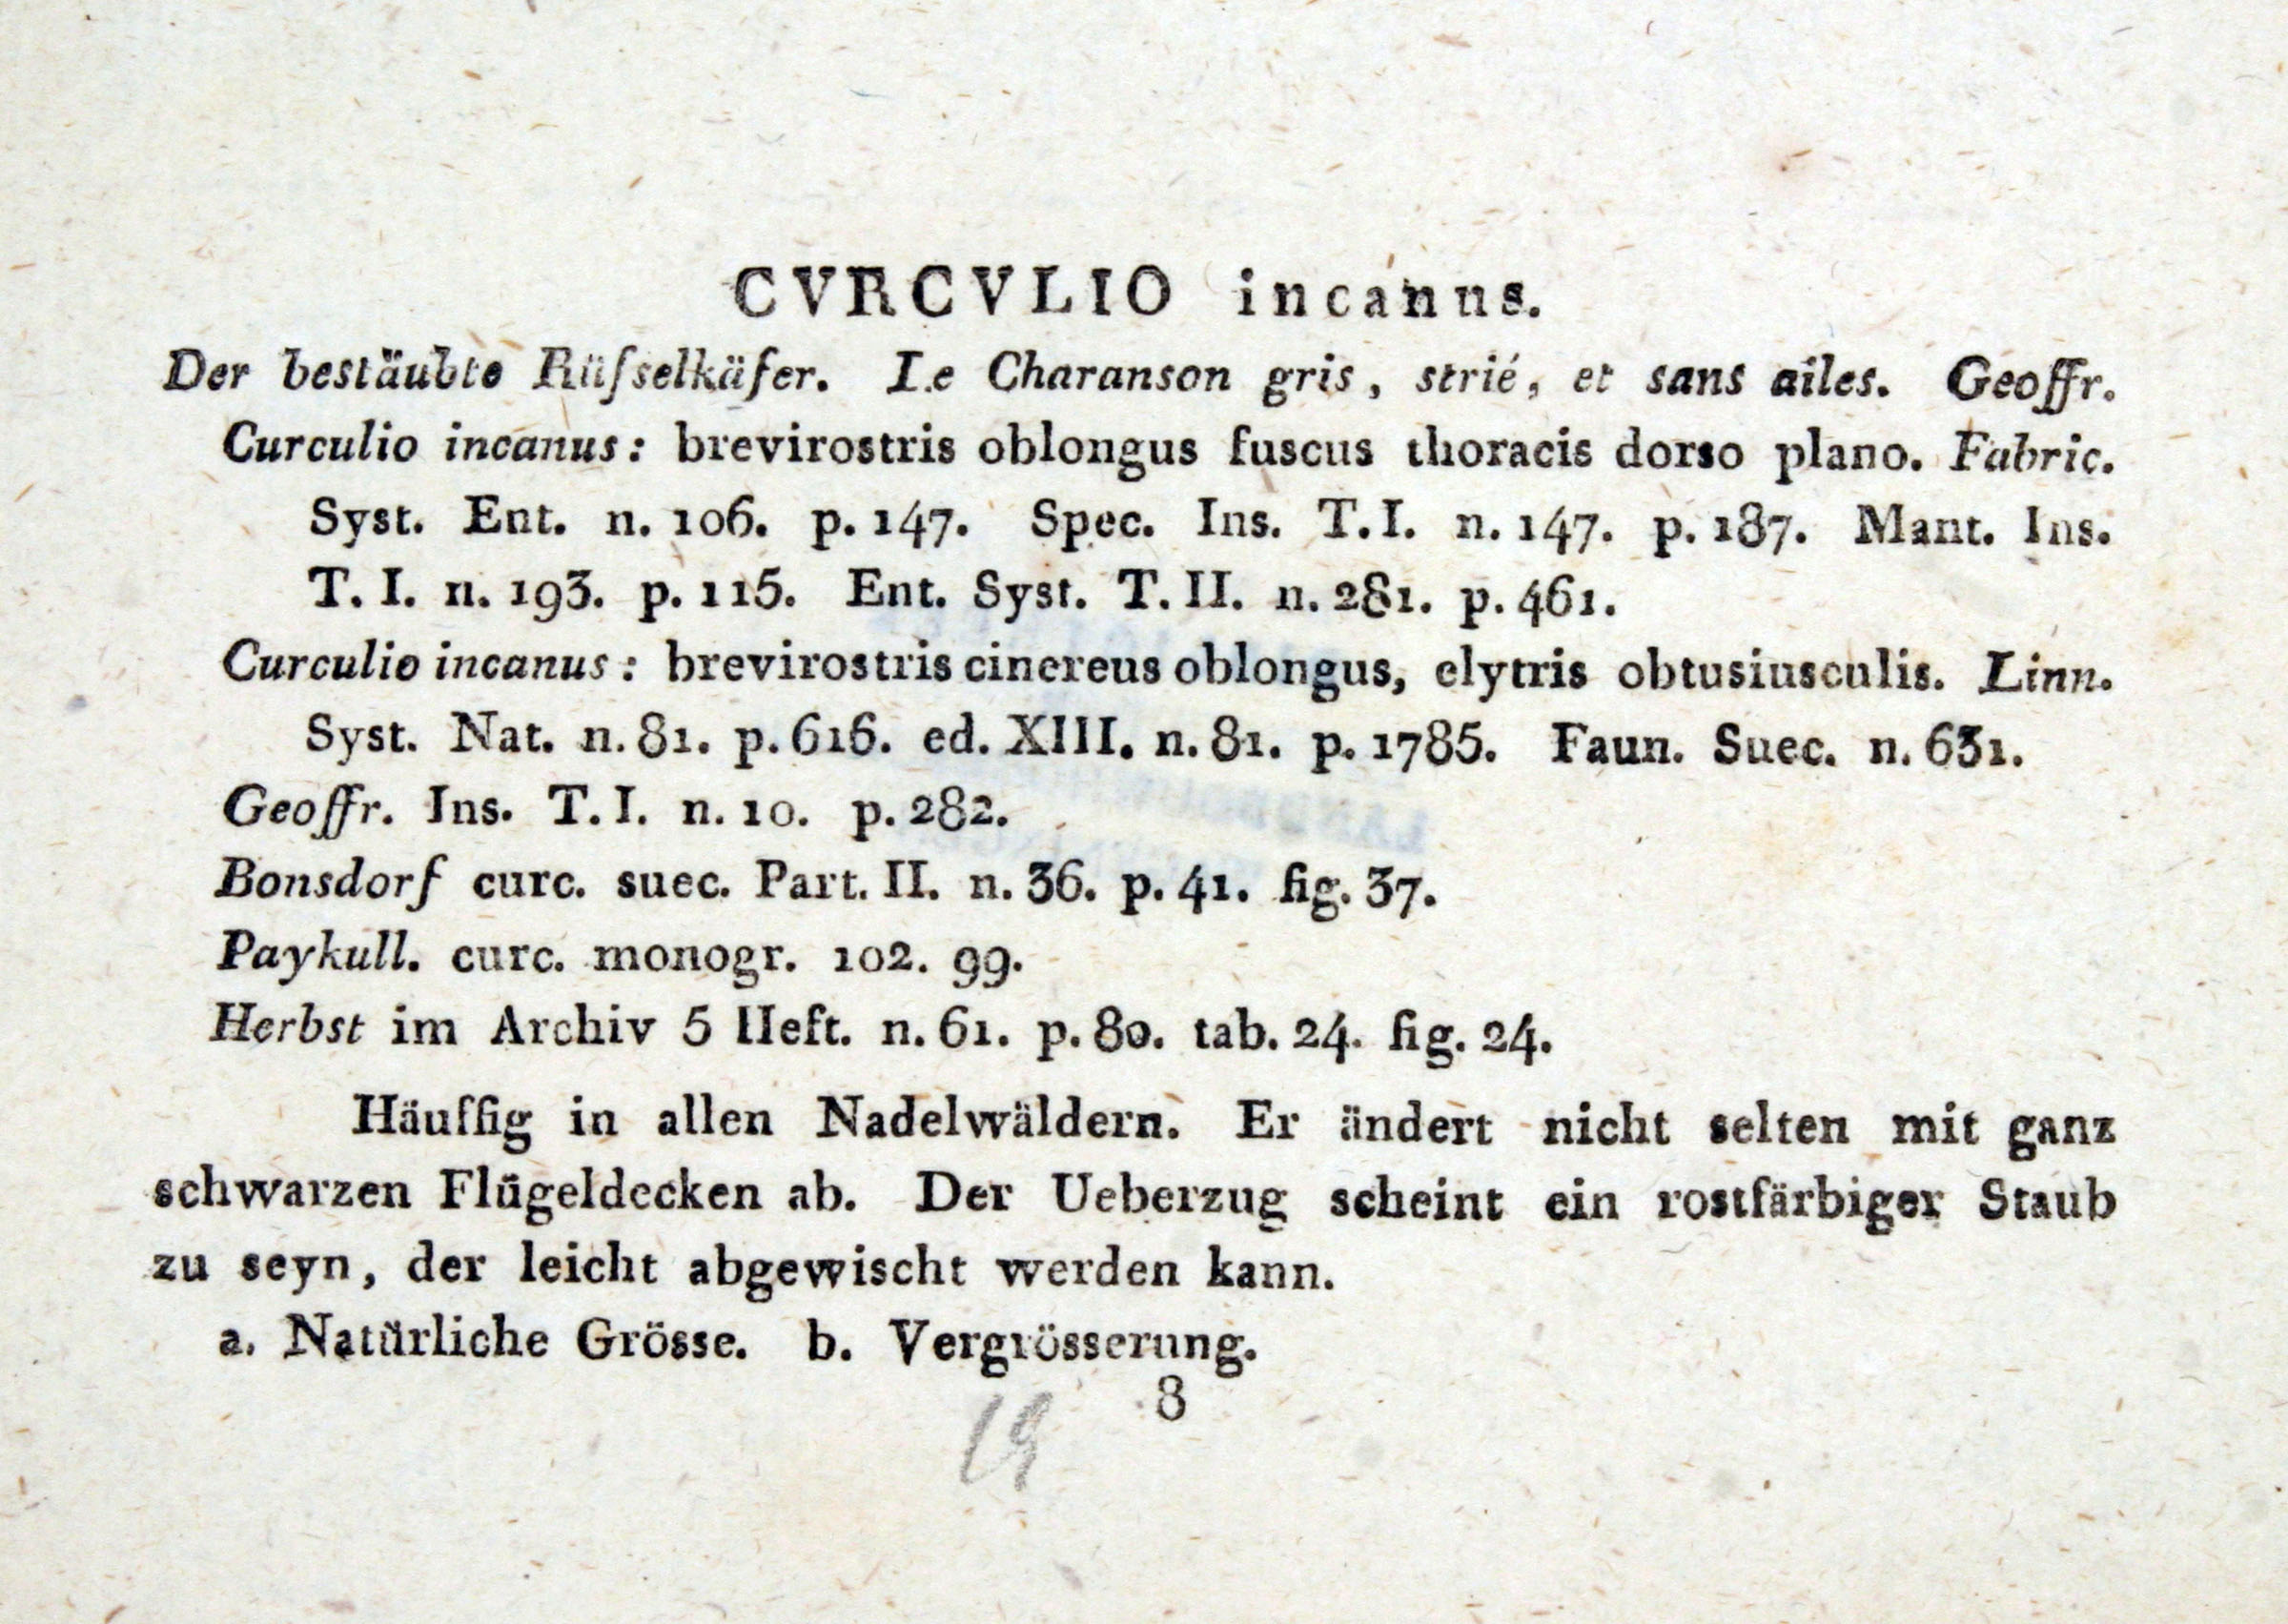 CVRCVLIO incanus.
Der bestäubte Rüſselkäfer. Le Charanson gris, strié, et sans ailes. Geoffr.
Curculio incanus: brevirostris oblongus fuscus thoracis dorso plano. Fabric.
Syst. Ent. n. 106. p. 147. Spec. Ins. T. I. n. 147. p. 187. Mant. Ins.
T. I. n. 193. p. 115. Ent. Syst. T. II. n. 281. p. 461.
Curculio incanus: brevirostris cinereus oblongus, elytris obtusiusculis. Linn.
Syst. Nat. n. 81. p. 616. ed. XIII. n. 81. p. 1785. Faun. Suec. n. 631.
Geoffr. Ins. T. I. n. 10. p. 282.
Bonsdorf curc. suec. Part. II. n. 36. p. 41. fig. 37.
Paykull. curc. monogr. 102. 99.
Herbst im Archiv 5 Heft. n. 61. p. 80. tab. 24. fig. 24.
Häuffig in allen Nadelwäldern. Er ändert nicht selten mit ganz
schwarzen Flügeldecken ab. Der Ueberzug scheint ein rostfärbiger Staub
zu seyn, der leicht abgewischt werden kann.
a. Natürliche Grösse. b. Vergrösserung.
8
19